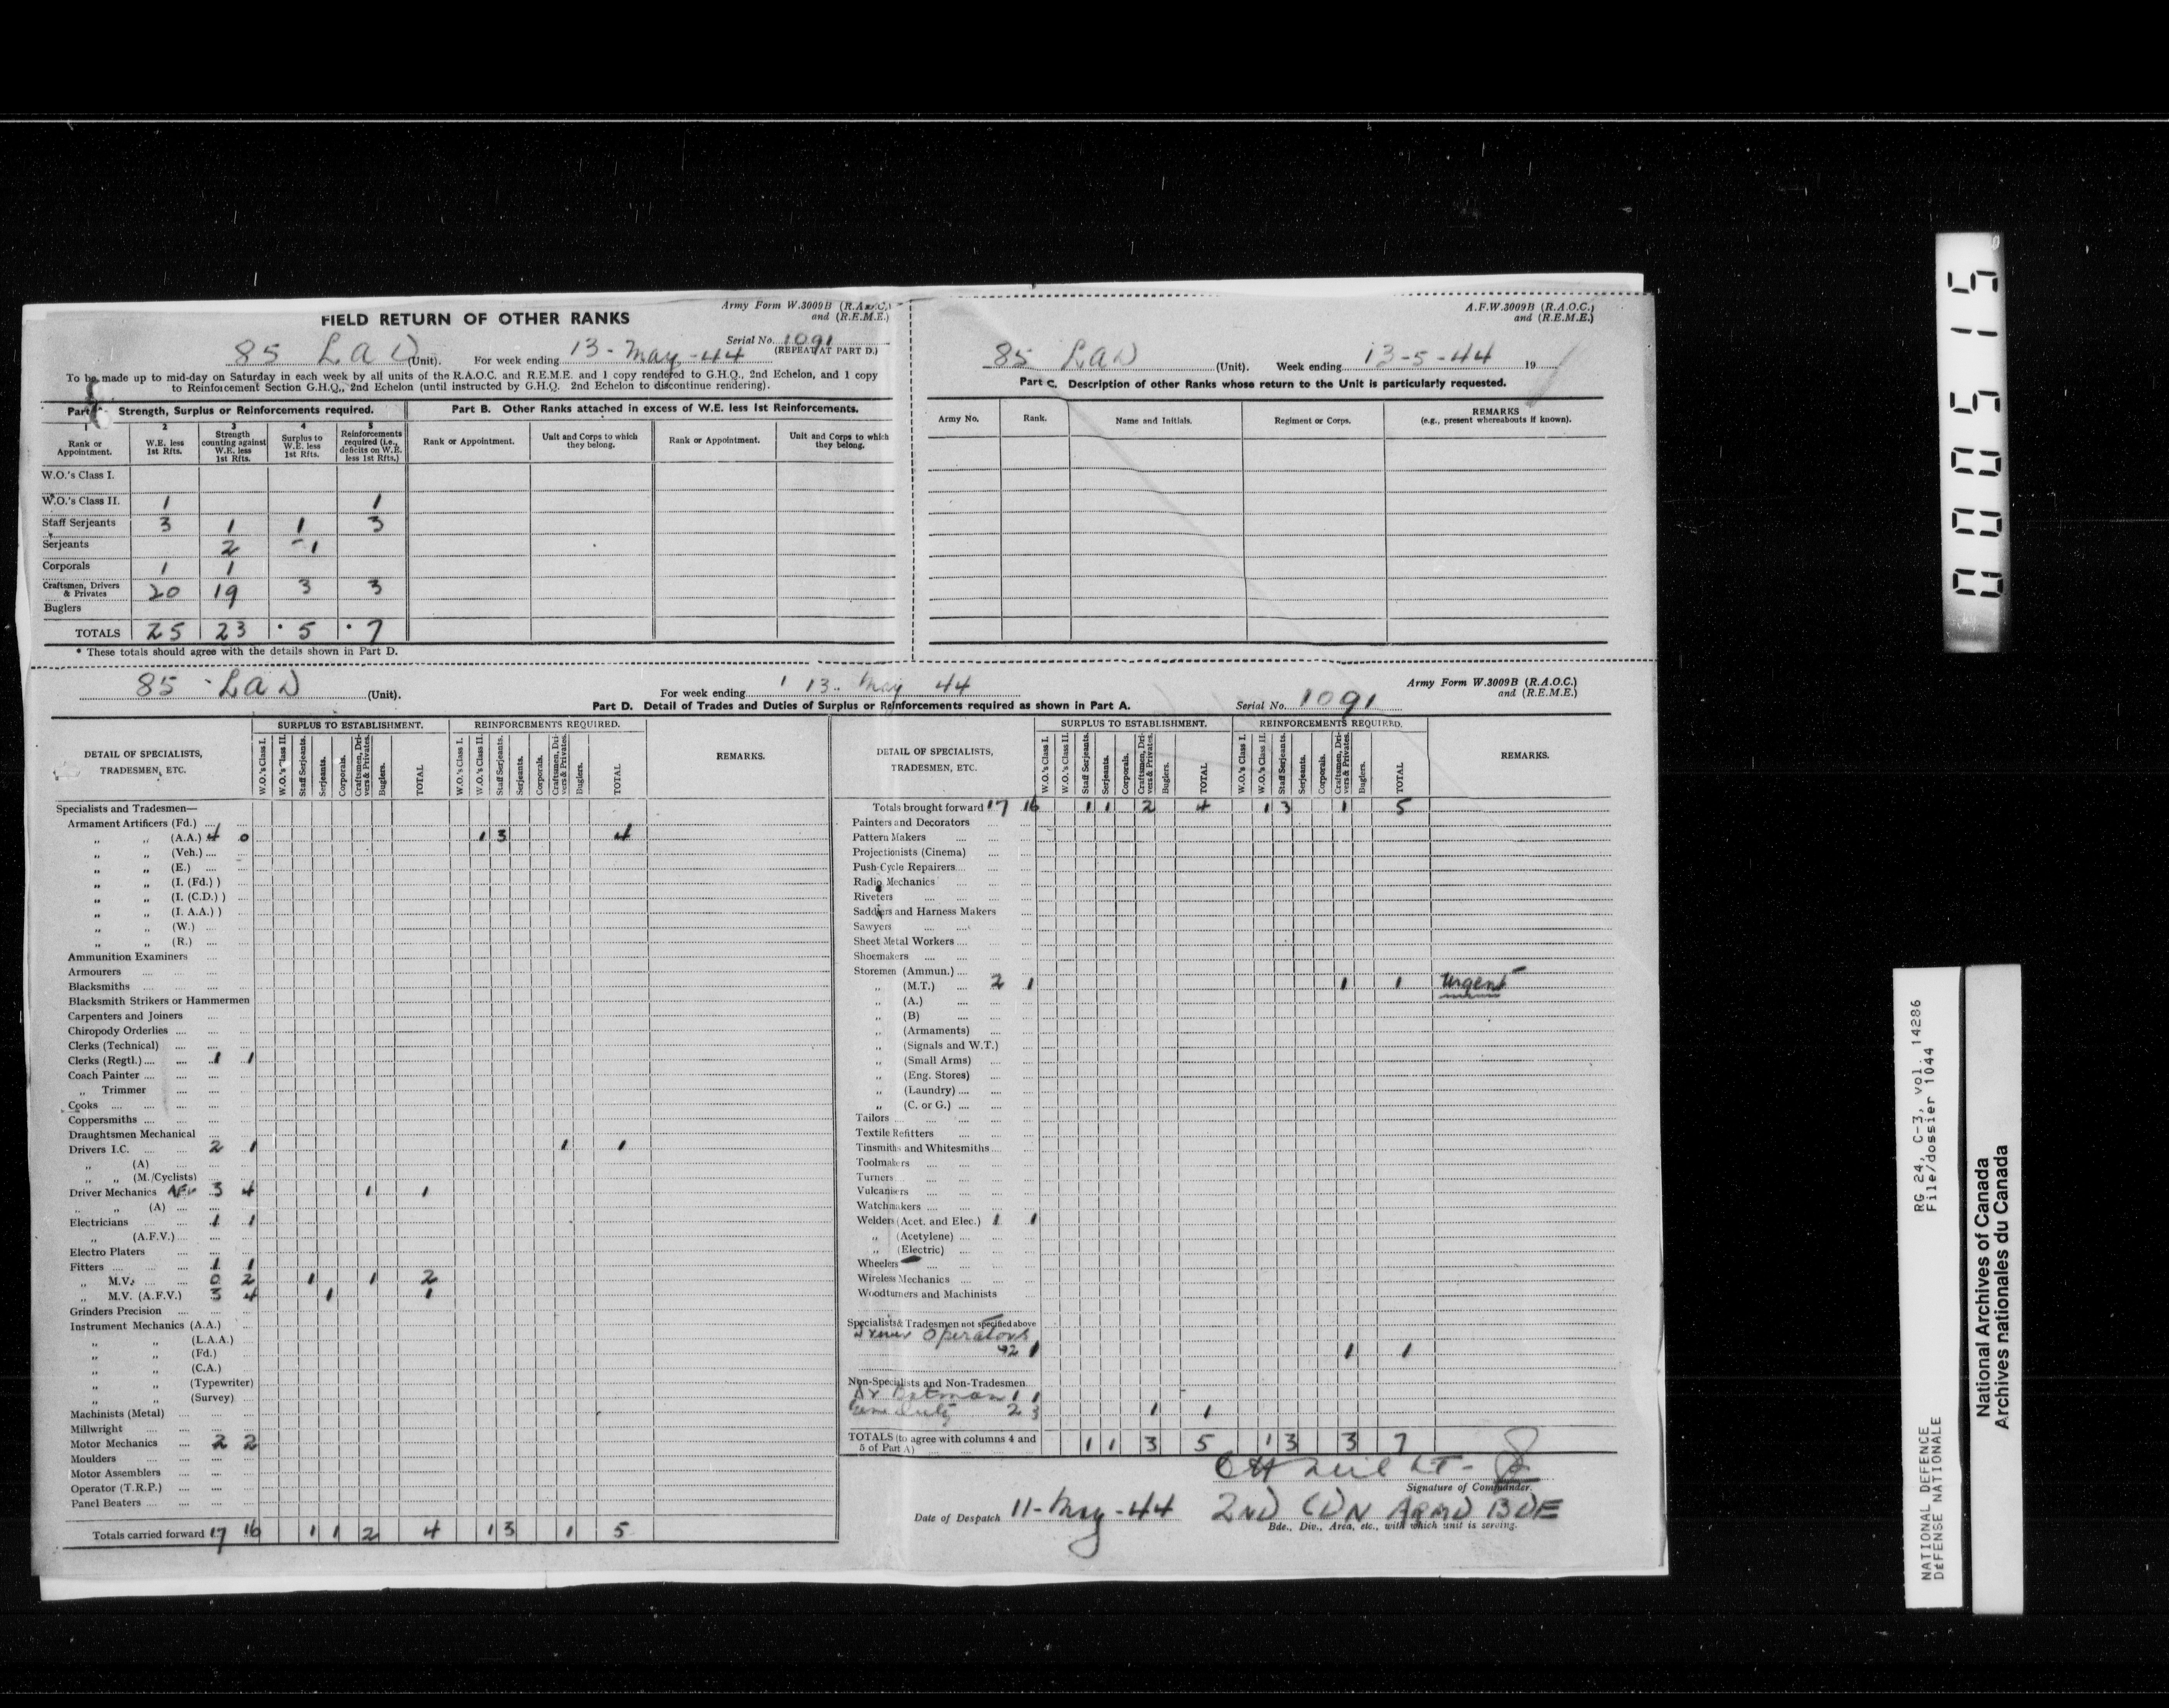 Army Form W.3009B (R.A.O.C.)
and (R.E.M.E.)
FIELD RETURN OF OTHER RANKS
Serial No. 1091
(REPEAT AT PART D.)
85 LAD (Unit). For week ending 13-May-44
To be made up to mid-day on Saturday in each week by all units of the R.A.O.C. and R.E.M.E. and 1 copy rendered to G.H.Q., 2nd Echelon, and 1 copy
to Reinforcement Section G.H.Q., 2nd Echelon (until instructed by G.H.Q. 2nd Echelon to discontinue rendering).
Part Strength, Surplus or Reinforcements required.
1 2 3 4 5
Rank or Appointment. W.E. less 1st Rfts. Strength counting against W.E. less 1st Rfts. Surplus to W.E. less 1st Rfts. Reinforcements required (i.e., deficits on W.E. less 1st Rfts.)
W.O.'s Class I.
W.O.'s Class II. 1 1
Staff Serjeants 3 1 1 3
Serjeants 2 -1
Corporals 1 1
Craftsmen, Drivers & Privates 20 19 3 3
Buglers
TOTALS 25 23 * 5 * 7
* These totals should agree with the details shown in Part D.
Part B. Other Ranks attached in excess of W.E. less 1st Reinforcements.
Rank or Appointment. Unit and Corps to which they belong. Rank or Appointment. Unit and Corps to which they belong.
A.F.W.3009B (R.A.O.C.)
and (R.E.M.E.)
85 LAD (Unit). Week ending 13-5-44 19
Part C. Description of other Ranks whose return to the Unit is particularly requested.
Army No. Rank. Name and Initials. Regiment or Corps. REMARKS (e.g., present whereabouts if known).
85 LAD (Unit). For week ending 13 May 44
Army Form W.3009B (R.A.O.C.)
and (R.E.M.E.)
Part D. Detail of Trades and Duties of Surplus or Reinforcements required as shown in Part A. Serial No. 1091
DETAIL OF SPECIALISTS, TRADESMEN, ETC.
SURPLUS TO ESTABLISHMENT. REINFORCEMENTS REQUIRED. REMARKS.
W.O.'s Class I. W.O.'s Class II. Staff Serjeants. Serjeants. Corporals. Craftsmen, Drivers & Privates. Buglers. TOTAL
W.O.'s Class I. W.O.'s Class II. Staff Serjeants. Serjeants. Corporals. Craftsmen, Drivers & Privates. Buglers. TOTAL
Specialists and Tradesmen—
Armament Artificers (Fd.)
„ „ (A.A.) 4 0 1 3 4
„ „ (Veh.)
„ „ (E.)
„ „ (I. (Fd.) )
„ „ (I. (C.D.) )
„ „ (I. A.A.) )
„ „ (W.)
„ „ (R.)
Ammunition Examiners
Armourers
Blacksmiths
Blacksmith Strikers or Hammermen
Carpenters and Joiners
Chiropody Orderlies
Clerks (Technical)
Clerks (Regtl.) 1 1
Coach Painter
„ Trimmer
Cooks
Coppersmiths
Draughtsmen Mechanical
Drivers I.C. 2 1 1 1
„ (A)
„ „ (M./Cyclists)
Driver Mechanics AFV 3 4 1 1
„ „ (A)
Electricians 1 1
„ (A.F.V.)
Electro Platers
Fitters 1 1
„ M.V. 0 2 1 1 2
„ M.V. (A.F.V.) 3 4 1 1
Grinders Precision
Instrument Mechanics (A.A.)
„ „ (L.A.A.)
„ „ (Fd.)
„ „ (C.A.)
„ „ (Typewriter)
„ „ (Survey)
Machinists (Metal)
Millwright
Motor Mechanics 2 2
Moulders
Motor Assemblers
Operator (T.R.P.)
Panel Beaters
Totals carried forward 17 16 1 1 2 4 1 3 1 5
DETAIL OF SPECIALISTS, TRADESMEN, ETC.
SURPLUS TO ESTABLISHMENT. REINFORCEMENTS REQUIRED. REMARKS.
W.O.'s Class I. W.O.'s Class II. Staff Serjeants. Serjeants. Corporals. Craftsmen, Drivers & Privates. Buglers. TOTAL
W.O.'s Class I. W.O.'s Class II. Staff Serjeants. Serjeants. Corporals. Craftsmen, Drivers & Privates. Buglers. TOTAL
Totals brought forward 17 16 1 1 2 4 1 3 1 5
Painters and Decorators
Pattern Makers
Projectionists (Cinema)
Push-Cycle Repairers
Radio Mechanics
Riveters
Saddlers and Harness Makers
Sawyers
Sheet Metal Workers
Shoemakers
Storemen (Ammun.)
„ (M.T.) 2 1 1 1 Urgent
„ (A.)
„ (B)
„ (Armaments)
„ (Signals and W.T.)
„ (Small Arms)
„ (Eng. Stores)
„ (Laundry)
„ (C. or G.)
Tailors
Textile Refitters
Tinsmiths and Whitesmiths
Toolmakers
Turners
Vulcanisers
Watchmakers
Welders (Acet. and Elec.) 1 1
„ (Acetylene)
„ (Electric)
Wheelers
Wireless Mechanics
Woodturners and Machinists
Specialists & Tradesmen not specified above
Operators
2 1 1 1
Non-Specialists and Non-Tradesmen
Dr Batman 1 1
Duty 2 3 1 1
TOTALS (to agree with columns 4 and 5 of Part A) 1 1 3 5 1 3 3 7
Signature of Commander.
Date of Despatch 11-May-44 2ND CDN ARMD BDE
Bde., Div., Area, etc., with which unit is serving.
000515
RG 24, C-3, vol. 14286
File/dossier 1044
NATIONAL DEFENCE
DéFENSE NATIONALE
National Archives of Canada
Archives nationales du Canada